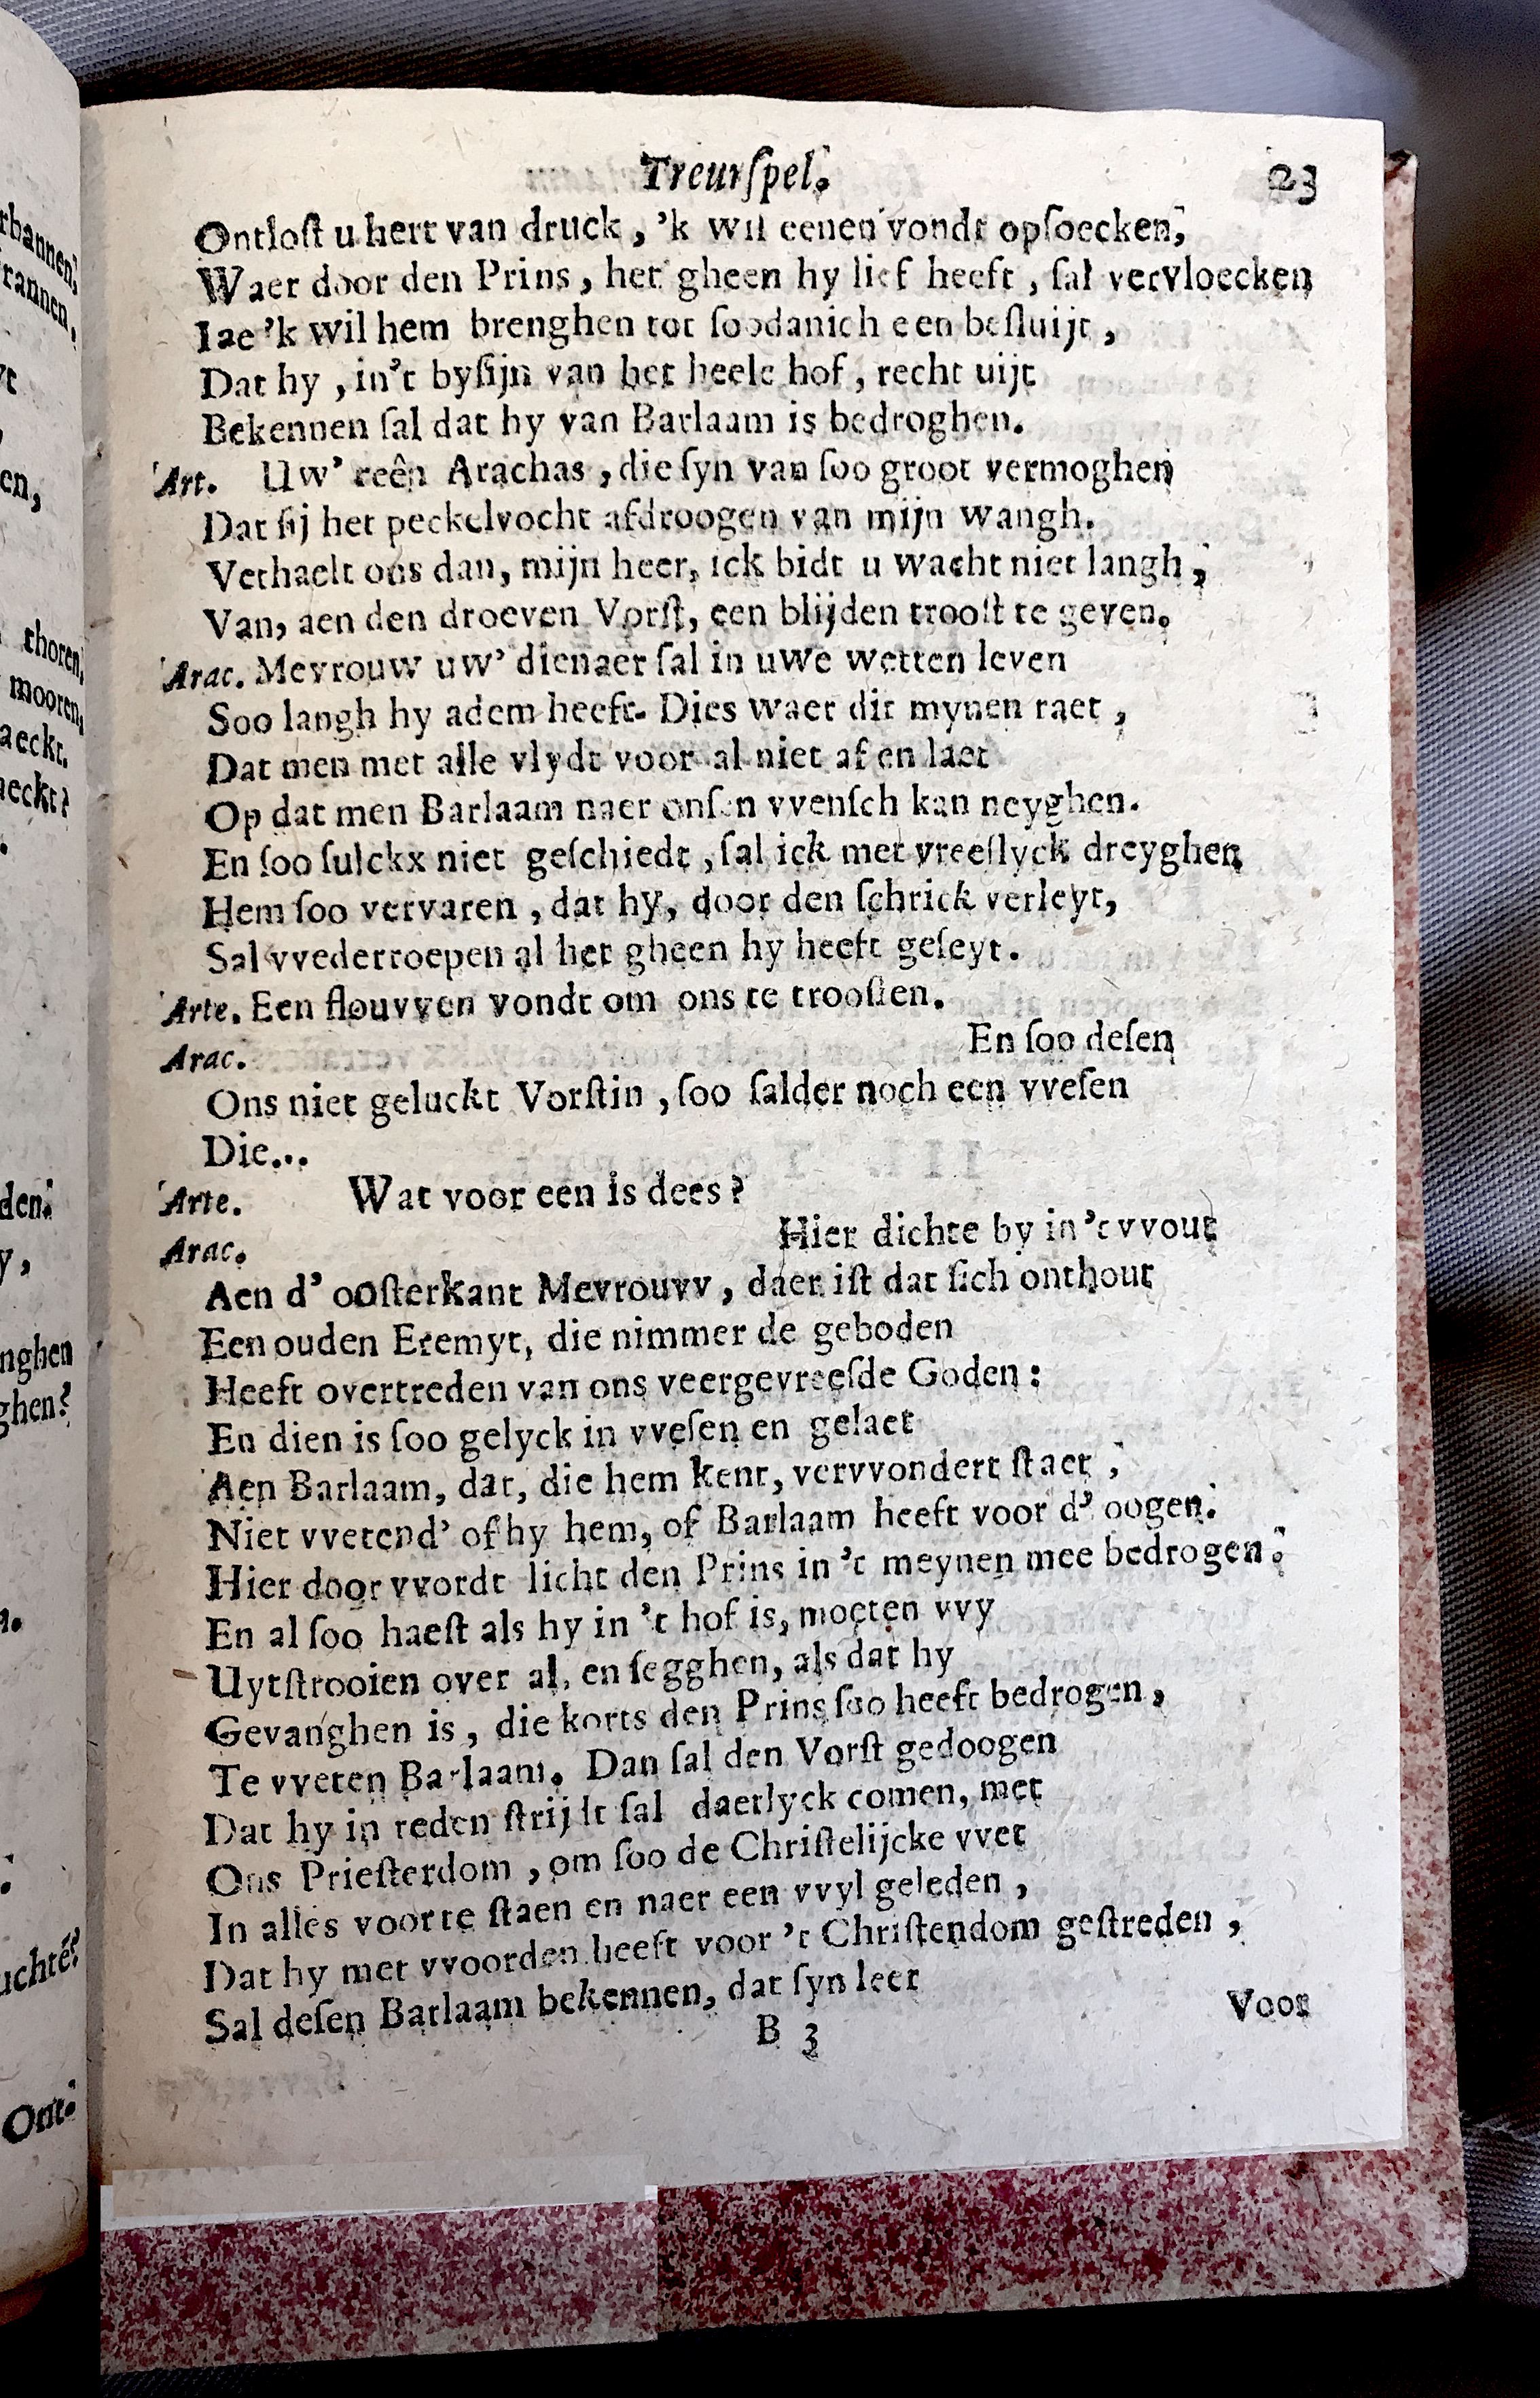 Treurſpel. 23
Ontloſt u hert van druck, 'k wil eenen vondt opſoecken,
Waer door den Prins, het gheen hy lief heeft, ſal vervloecken
Iae 'k wil hem brenghen tot ſoodanich een beſluijt,
Dat hy, in't byſijn van het heele hof, recht uijt
Bekennen ſal dat hy van Barlaam is bedroghen.
Art. Uw' reên Arachas, die ſyn van ſoo groot vermoghen
Dat ſij het peckelvocht afdroogen van mijn wangh.
Verhaelt ons dan, mijn heer, ick bidt u wacht niet langh,
Van, aen den droeven Vorſt, een blijden trooſt te geven.
Arac. Mevrouw uw' dienaer ſal in uwe wetten leven
Soo langh hy adem heeft. Dies waer dit mynen raet,
Dat men met alle vlydt voor al niet af en laet
Op dat men Barlaam naer onſen vvenſch kan neyghen.
En ſoo ſulckx niet geſchiedt, ſal ick met vreeſlyck dreyghen
Hem ſoo vervaren, dat hy, door den ſchrick verleyt,
Sal vvederroepen al het gheen hy heeft geſeyt.
Arte. Een flouvven vondt om ons te trooſten.
En ſoo deſen
Arac.
Ons niet geluckt Vorſtin, ſoo ſalder noch een vveſen
Die...
Arte. Wat voor een is dees?
Hier dichte by in 't vvout
Arac.
Aen d' ooſterkant Mevrouvv, daer iſt dat ſich onthout
Een ouden Eremyt, die nimmer de geboden
Heeft overtreden van ons veergevreeſde Goden:
En dien is ſoo gelyck in vveſen en gelaet
Aen Barlaam, dat, die hem kent, vervvondert ſtaet,
Niet vvetend' of hy hem, of Barlaam heeft voor d' oogen.
Hier door vvordt licht den Prins in 't meynen mee bedrogen.
En al ſoo haeſt als hy in 't hof is, moeten vvy
Uytſtrooien over al, en ſegghen, als dat hy
Gevanghen is, die korts den Prins ſoo heeft bedrogen,
Te vveten Barlaam. Dan ſal den Vorſt gedoogen
Dat hy in reden ſtrijdt ſal daerlyck comen, met
Ons Prieſterdom, om ſoo de Chriſtelijcke vvet
In alles voor te ſtaen en naer een vvyl geleden,
Dat hy met vvoorden heeft voor 't Chriſtendom geſtreden,
Sal deſen Barlaam bekennen, dat ſyn leer
B 3 Voor